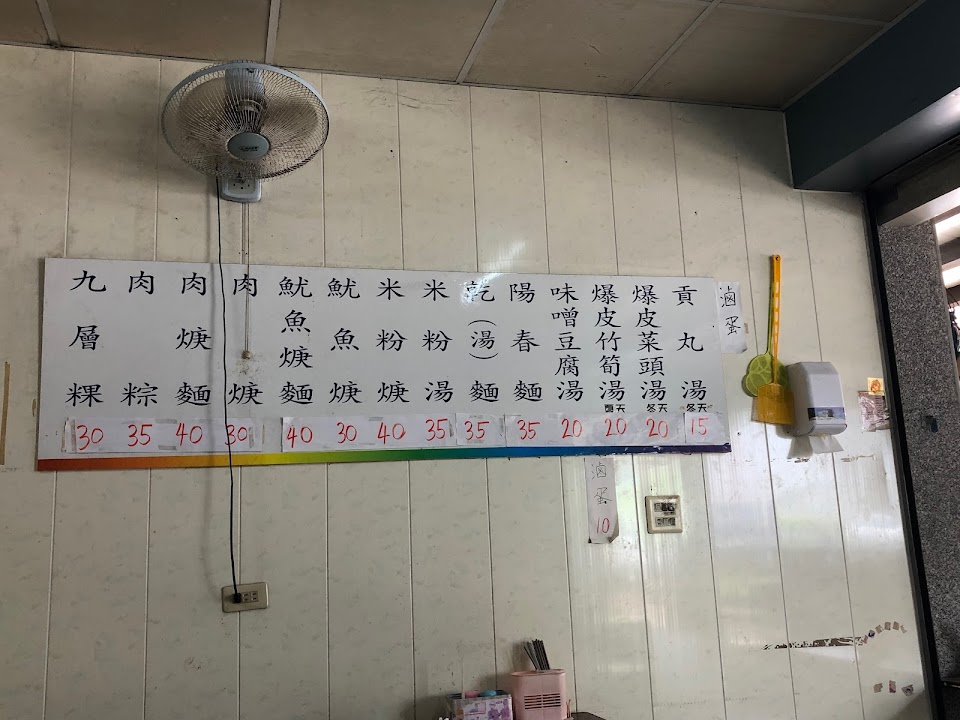 九層粿 30
肉粽 35
肉焿麵 40
肉焿 30
魷魚焿麵 40
魷魚焿 30
米粉焿 40
米粉湯 35
乾(湯)麵 35
陽春麵 35
味噌豆腐湯 20
爆皮竹筍湯 夏天 20
爆皮菜頭湯 冬天 20
貢丸湯 冬天 15
滷蛋
滷蛋 10